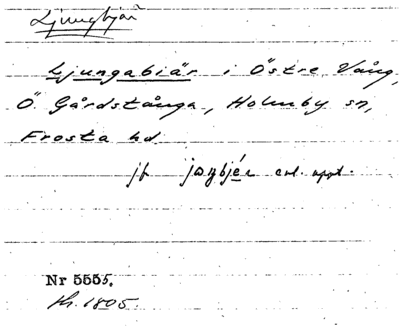 Ljungbjär
Ljungabiär i Östre Vång,
Ö. Gårdstånga, Holmby sn,
Frosta hd
jf enl. uppt.
Nr 5555.
1805.